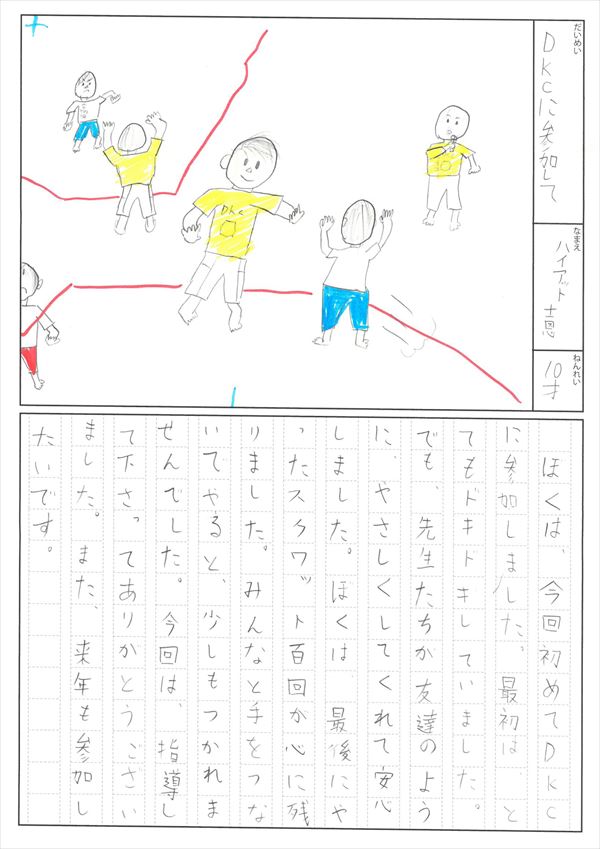 だいめい
DKCに参加して
なまえ
ハイアット
ねんれい
10才
DKC
ぼくは、今回初めてDKC
に参加しました。最初はと
てもドキドキしていました。
でも、先生たちが友達のよう
に、やさしくしてくれて安心
しました。ぼくは、最後にや
ったスクワット百回が心に残
りました。みんなと手をつな
いでやると、少しもつかれま
せんでした。今回は、指導し
て下さってありがとうござい
ました。また、来年も参加し
たいです。